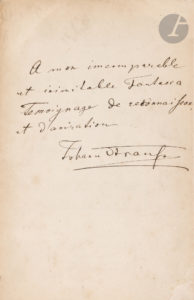 A mon incomparable
et inimitable Fantasca
Témoignage de reconnaissance
et d'amiration
Johann Strauss